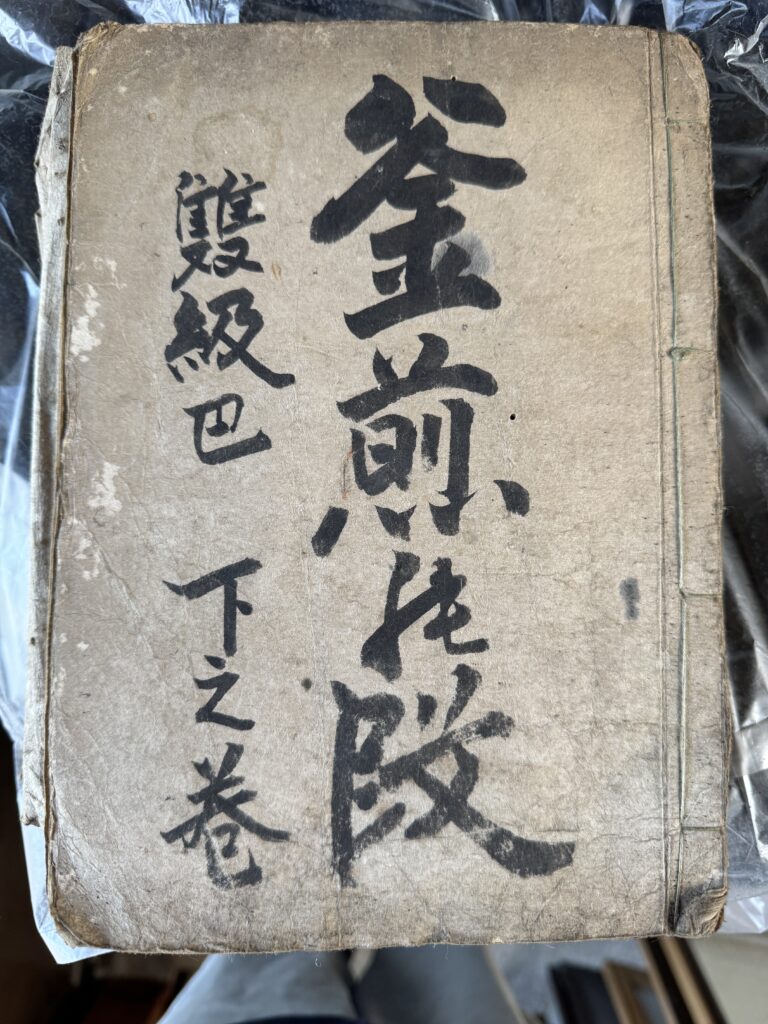 釜煎の段
雙級巴 下之巻